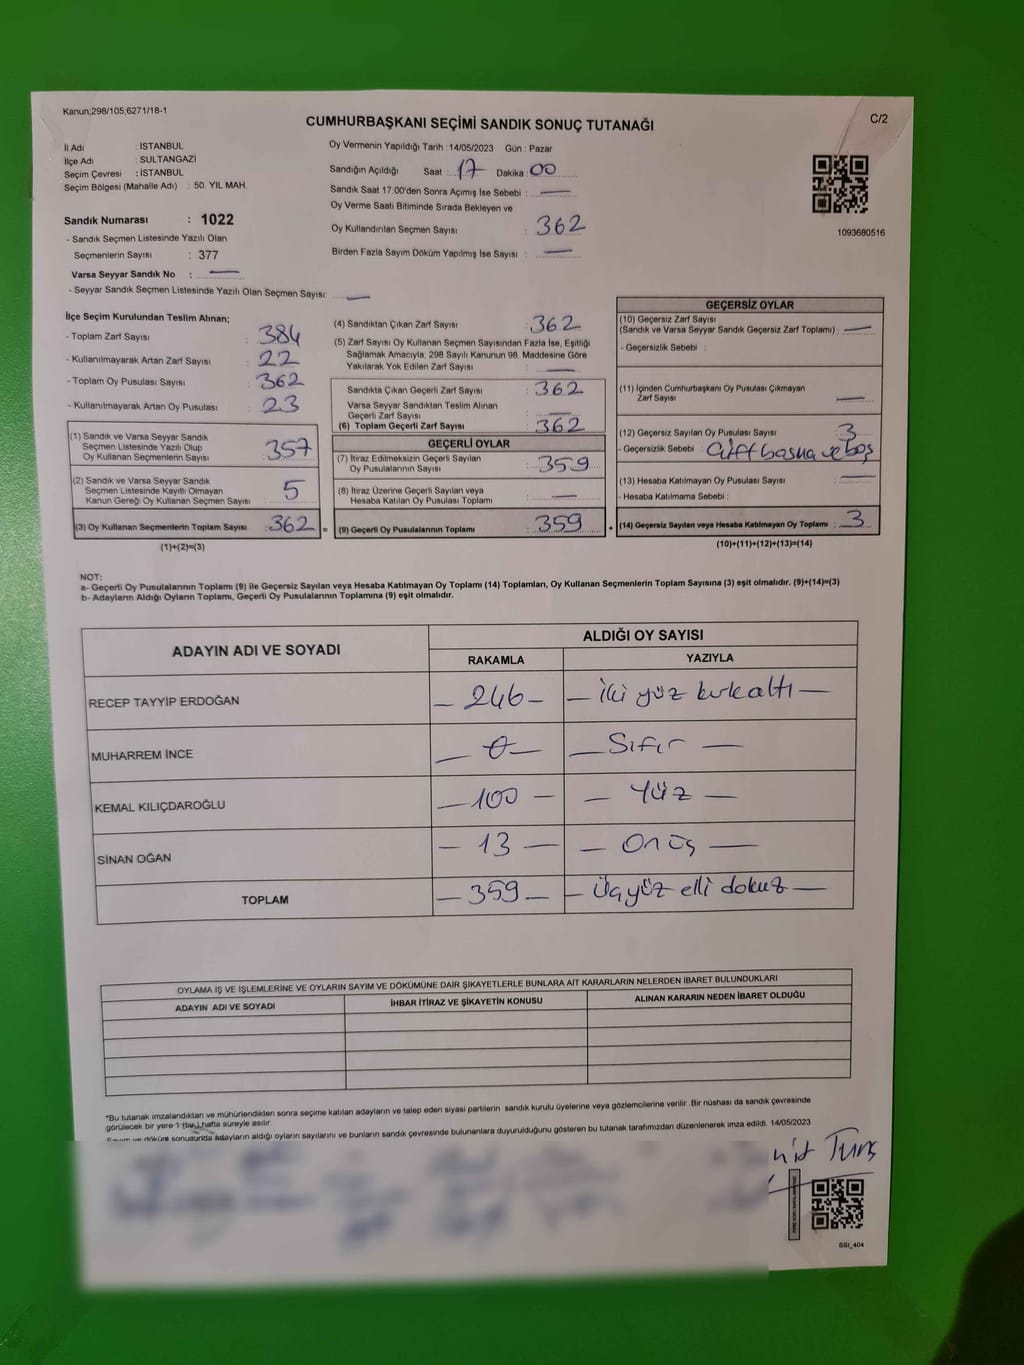 Kanun;298/105,6271/18-1
C/2
CUMHURBAŞKANI SEÇİMİ SANDIK SONUÇ TUTANAĞI
İl Adı : İSTANBUL
İlçe Adı : SULTANGAZİ
Seçim Çevresi : İSTANBUL
Seçim Bölgesi (Mahalle Adı) : 50. YIL MAH.
Sandık Numarası : 1022
- Sandık Seçmen Listesinde Yazılı Olan
Seçmenlerin Sayısı : 377
Varsa Seyyar Sandık No : —
- Seyyar Sandık Seçmen Listesinde Yazılı Olan Seçmen Sayısı: —
Oy Vermenin Yapıldığı Tarih : 14/05/2023 Gün : Pazar
Sandığın Açıldığı Saat : 17 Dakika : 00
Sandık Saat 17:00'den Sonra Açımış İse Sebebi : —
Oy Verme Saati Bitiminde Sırada Bekleyen ve
Oy Kullandırılan Seçmen Sayısı : 362
Birden Fazla Sayım Döküm Yapılmış İse Sayısı : —
1093680516
İlçe Seçim Kurulundan Teslim Alınan;
- Toplam Zarf Sayısı : 384
- Kullanılmayarak Artan Zarf Sayısı : 22
- Toplam Oy Pusulası Sayısı : 362
- Kullanılmayarak Artan Oy Pusulası : 23
(1) Sandık ve Varsa Seyyar Sandık
Seçmen Listesinde Yazılı Olup
Oy Kullanan Seçmenlerin Sayısı : 357
(2) Sandık ve Varsa Seyyar Sandık
Seçmen Listesinde Kayıtlı Olmayan
Kanun Gereği Oy Kullanan Seçmen Sayısı : 5
(3) Oy Kullanan Seçmenlerin Toplam Sayısı : 362 =
(1)+(2)=(3)
(4) Sandıktan Çıkan Zarf Sayısı : 362
(5) Zarf Sayısı Oy Kullanan Seçmen Sayısından Fazla İse, Eşitliği
Sağlamak Amacıyla, 298 Sayılı Kanunun 98. Maddesine Göre
Yakılarak Yok Edilen Zarf Sayısı : —
Sandıkta Çıkan Geçerli Zarf Sayısı : 362
Varsa Seyyar Sandıktan Teslim Alınan
Geçerli Zarf Sayısı : —
(6) Toplam Geçerli Zarf Sayısı : 362
GEÇERLİ OYLAR
(7) İtiraz Edilmeksizin Geçerli Sayılan
Oy Pusulalarının Sayısı : 359
(8) İtiraz Üzerine Geçerli Sayılan veya
Hesaba Katılan Oy Pusulası Toplamı : —
(9) Geçerli Oy Pusulalarının Toplamı : 359 +
GEÇERSİZ OYLAR
(10) Geçersiz Zarf Sayısı
(Sandık ve Varsa Seyyar Sandık Geçersiz Zarf Toplamı) : —
- Geçersizlik Sebebi :
(11) İçinden Cumhurbaşkanı Oy Pusulası Çıkmayan
Zarf Sayısı : —
(12) Geçersiz Sayılan Oy Pusulası Sayısı : 3
- Geçersizlik Sebebi : çift basma ve boş
(13) Hesaba Katılmayan Oy Pusulası Sayısı : —
- Hesaba Katılmama Sebebi :
(14) Geçersiz Sayılan veya Hesaba Katılmayan Oy Toplamı : 3
(10)+(11)+(12)+(13)=(14)
NOT:
a- Geçerli Oy Pusulalarının Toplamı (9) ile Geçersiz Sayılan veya Hesaba Katılmayan Oy Toplamı (14) Toplamları, Oy Kullanan Seçmenlerin Toplam Sayısına (3) eşit olmalıdır. (9)+(14)=(3)
b- Adayların Aldığı Oyların Toplamı, Geçerli Oy Pusulalarının Toplamına (9) eşit olmalıdır.
ADAYIN ADI VE SOYADI
ALDIĞI OY SAYISI
RAKAMLA YAZIYLA
RECEP TAYYİP ERDOĞAN — 246 — — İki yüz kırk altı —
MUHARREM İNCE — 0 — — Sıfır —
KEMAL KILIÇDAROĞLU — 100 — — Yüz —
SİNAN OĞAN — 13 — — On üç —
TOPLAM — 359 — — Üçyüz elli dokuz —
OYLAMA İŞ VE İŞLEMLERİNE VE OYLARIN SAYIM VE DÖKÜMÜNE DAİR ŞİKAYETLERLE BUNLARA AİT KARARLARIN NELERDEN İBARET BULUNDUKLARI
ADAYIN ADI VE SOYADI İHBAR İTİRAZ VE ŞİKAYETİN KONUSU ALINAN KARARIN NEDEN İBARET OLDUĞU
*Bu tutanak imzalandıktan ve mühürlendikten sonra seçime katılan adayların ve talep eden siyasi partilerin sandık kurulu üyelerine veya gözlemcilerine verilir .Bir nüshası da sandık çevresinde
görülecek bir yere 1 (bir ) hafta süreyle asılır.
Sayım ve döküm sonucunda adayların aldığı oyların sayılarını ve bunların sandık çevresinde bulunanlara duyurulduğunu gösteren bu tutanak tarafımızdan düzenlenerek imza edildi. 14/05/2023
SSI_404